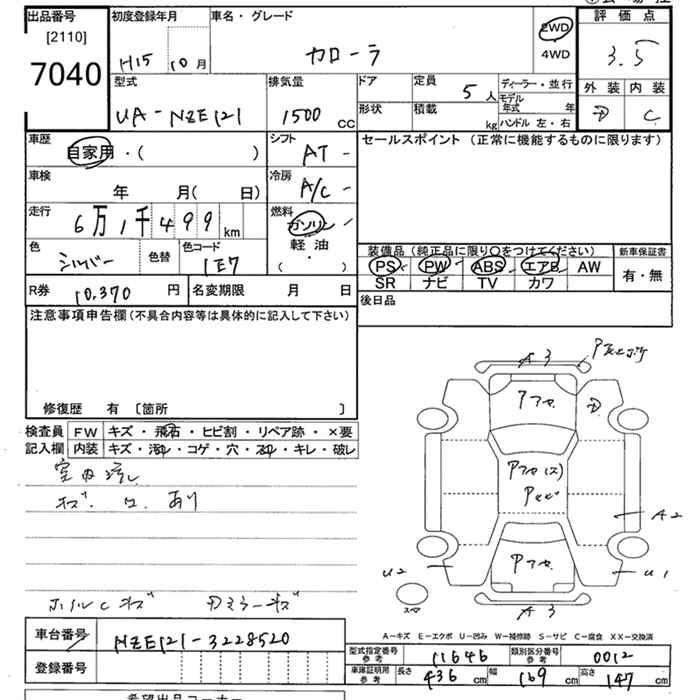 出品番号 初度登録年月 車名・グレード 2WD 評価点
[2110]
7040 H15 10月 カローラ 4WD 3.5
外装 内装
型式 排気量 ドア 定員 5人 ディーラー・並行
UA-NZE121 1500cc 形状 積載 kg モデル年式 年 C
ハンドル 左・右
車歴 シフト セールスポイント (正常に機能するものに限ります)
自家用・( ) AT-
車検 冷房
年 月( 日) A/C-
走行 燃料
6万1千499km ガソリン
軽油
・
( )
色 シルバー 色替 色コード 1E7
装備品 (純正品に限り○をつけてください) 新車保証書
PS PW ABS エアB AW 有・無
SR ナビ TV カワ
R券 10,370円 名変期限 月 日 後日品
注意事項申告欄(不具合内容等は具体的に記入して下さい)
修復歴 有 〔箇所 〕
検査員 FW キズ・飛石・ヒビ割・リペア跡・×要
記入欄 内装 キズ・汚れ・コゲ・穴・スレ・キレ・破し
キズ. あり
ホイルCキズ ミラーキズ
A3
アフセ
Pアフセ(ス)
Pサビ
Pアフセ
A2
U2
U1
スペア
A3
A-キズ E-エクボ U-凹み W-補修跡 S-サビ C-腐食 XX-交換済
車台番号 NZE121-3228520
登録番号
型式指定番号 参考 11646 類別区分番号 参考 0012
車庫証明用 参考 長さ 436cm 幅 169cm 高さ 147cm
希望出品コーナー